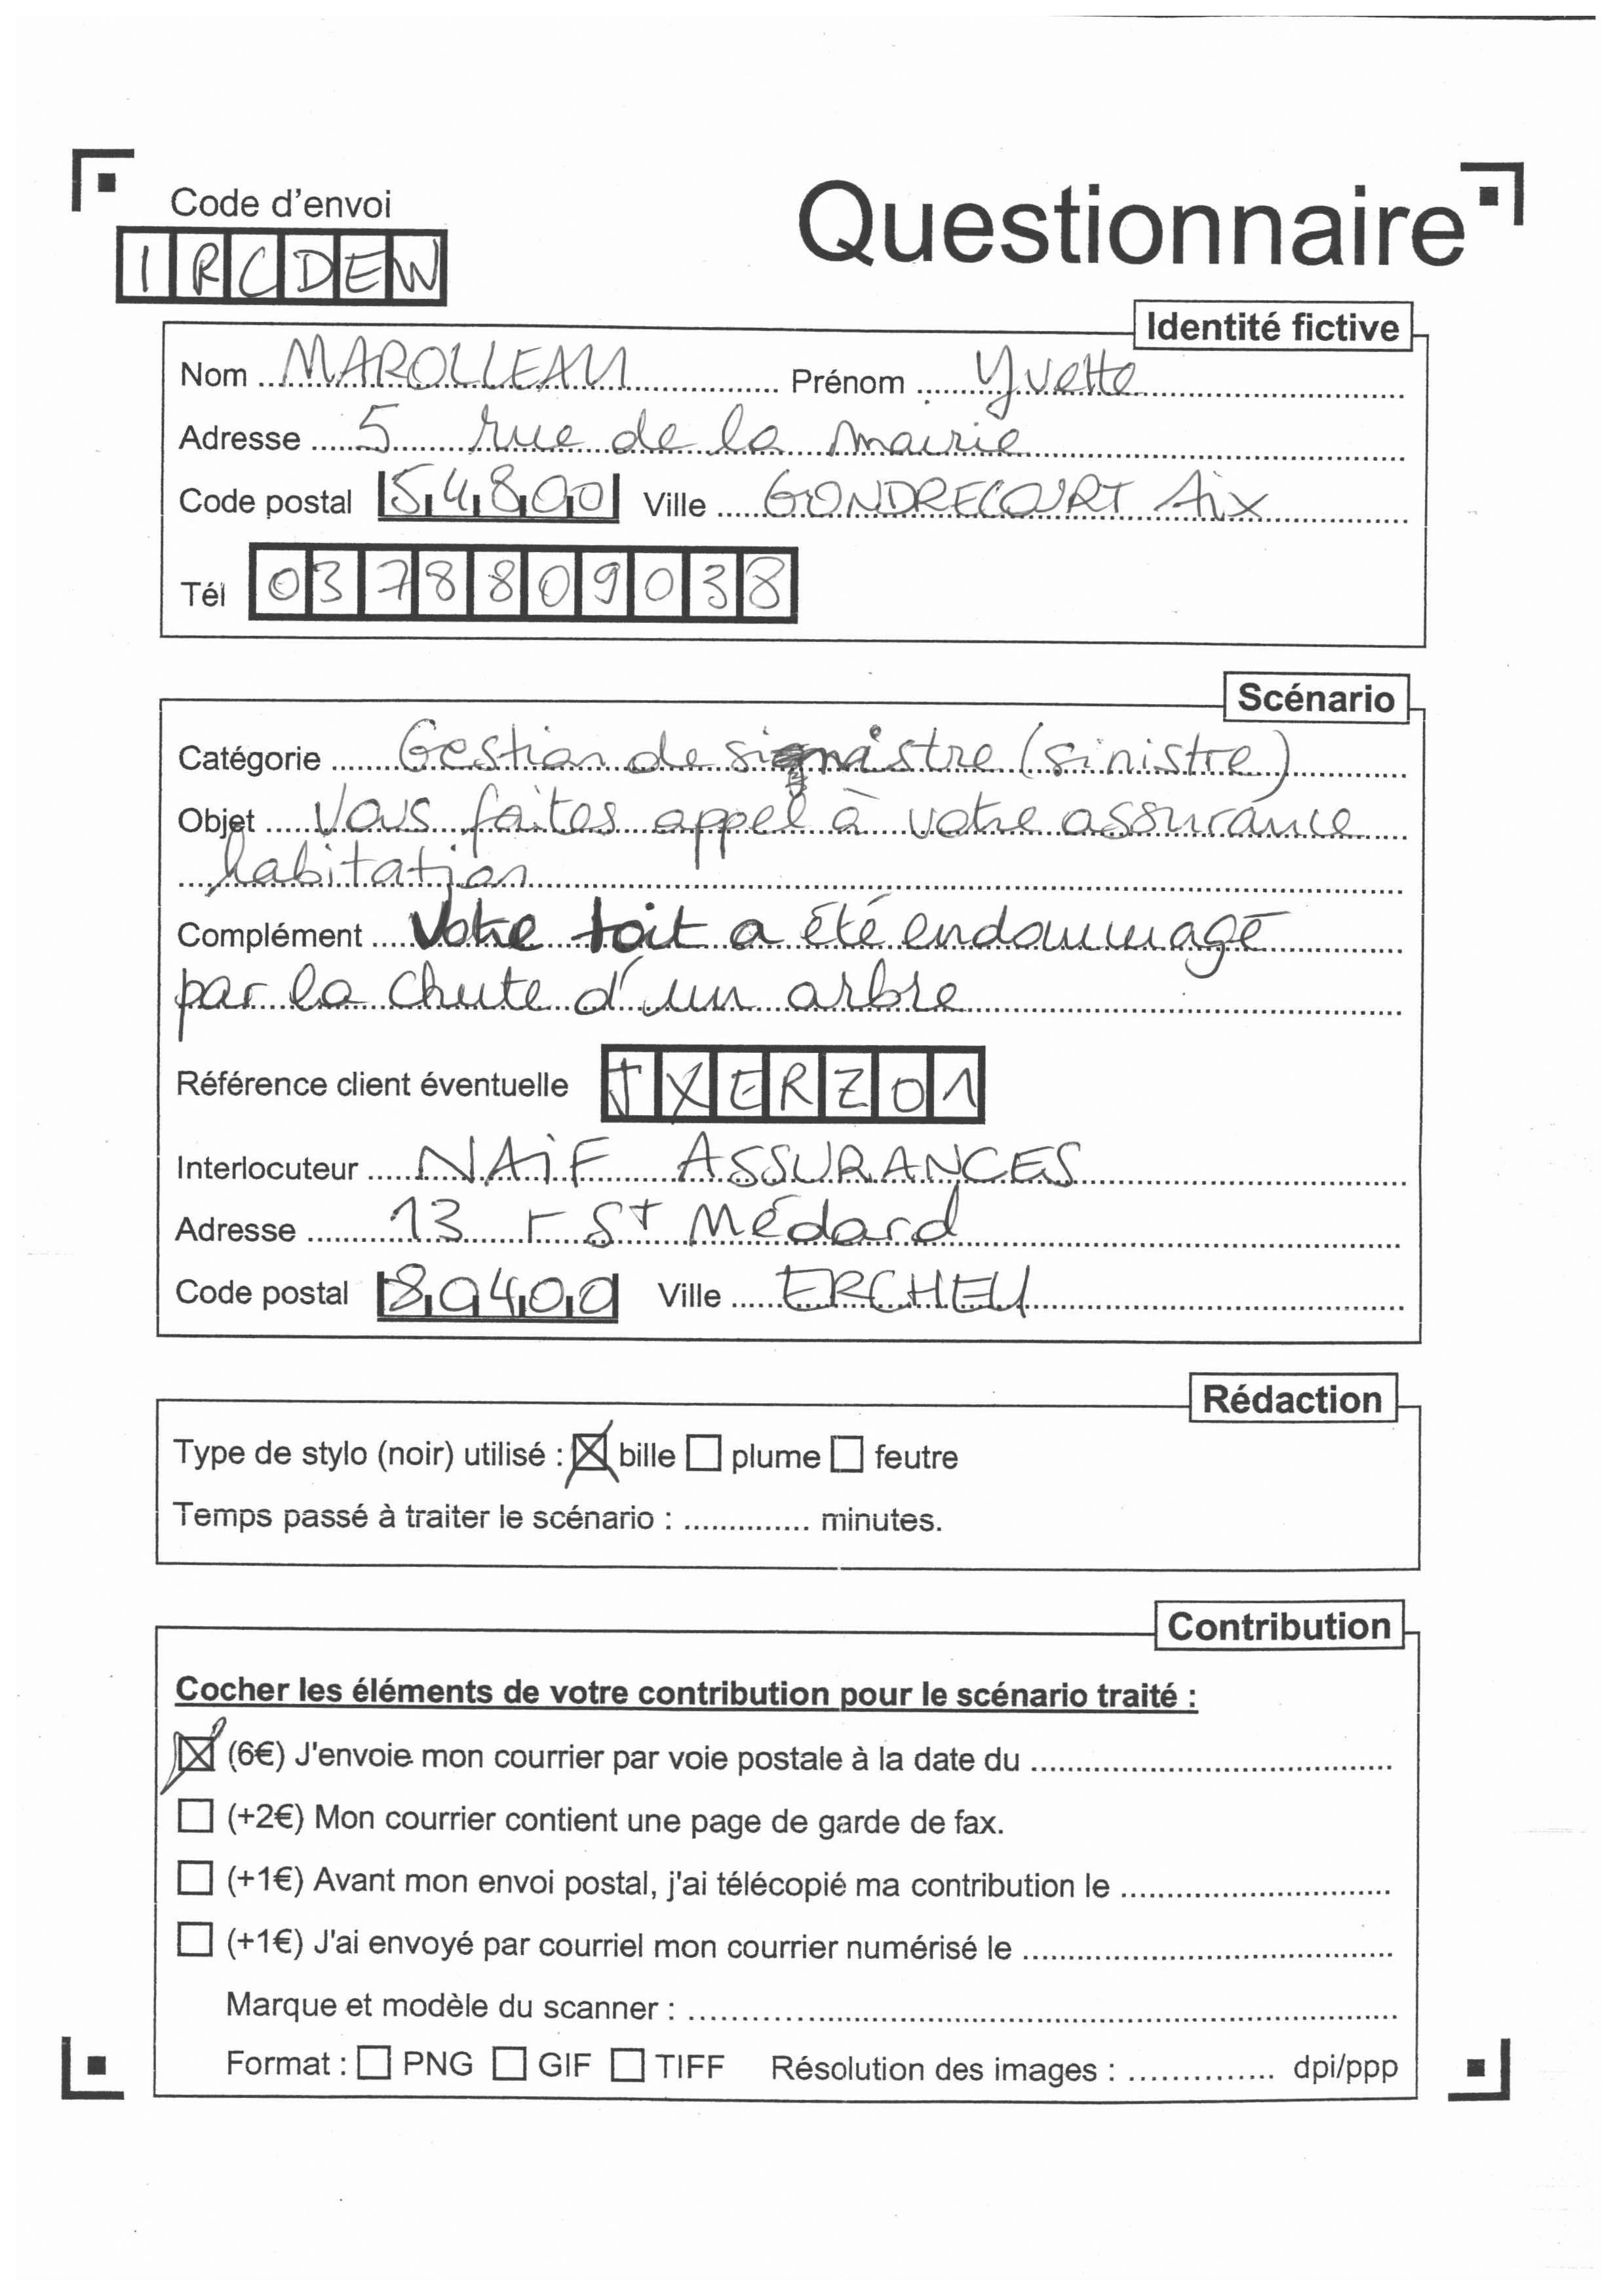 Code d'envoi
IRCDEW
Questionnaire
Identité fictive
Nom MAROLLEAU Prénom Yvette
Adresse 5 rue de la mairie
Code postal 54800 Ville GONDRECOURT Aix
Tél 0378809038
Scénario
Catégorie Gestion de sinistre (sinistre)
Objet Vous faites appel à votre assurance
habitation
Complément Votre toit a été endommagé
par la chute d'un arbre
Référence client éventuelle JXERZ01
Interlocuteur NAiF ASSURANCES
Adresse 13 r St Médard
Code postal 80400 Ville ERCHEU
Rédaction
Type de stylo (noir) utilisé : bille plume feutre
Temps passé à traiter le scénario : .............. minutes.
Contribution
Cocher les éléments de votre contribution pour le scénario traité :
(6€) J'envoie mon courrier par voie postale à la date du ........................................
(+2€) Mon courrier contient une page de garde de fax.
(+1€) Avant mon envoi postal, j'ai télécopié ma contribution le ..............................
(+1€) J'ai envoyé par courriel mon courrier numérisé le ........................................
Marque et modèle du scanner : ........................................
Format : PNG GIF TIFF Résolution des images : .............. dpi/ppp